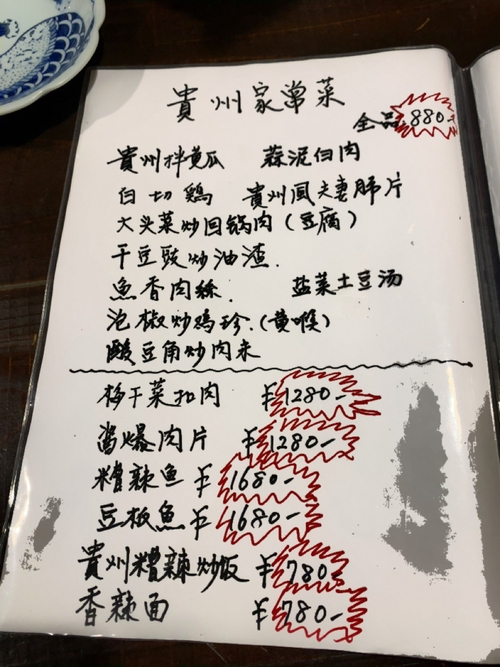 貴州家常菜
全品 880-
貴州拌黄瓜 蒜泥白肉
白切鶏 貴州風夫妻肺片
大头菜炒回锅肉(豆腐)
干豆豉炒油渣.
魚香肉絲. 盐菜土豆汤
泡椒炒鸡珍.(黄喉)
酸豆角炒肉末
梅干菜扣肉 ¥1280-
酱爆肉片 ¥1280-
糟辣鱼 ¥1680-
豆板魚 ¥1680-
貴州糟辣炒饭 ¥780-
香辣面 ¥780-